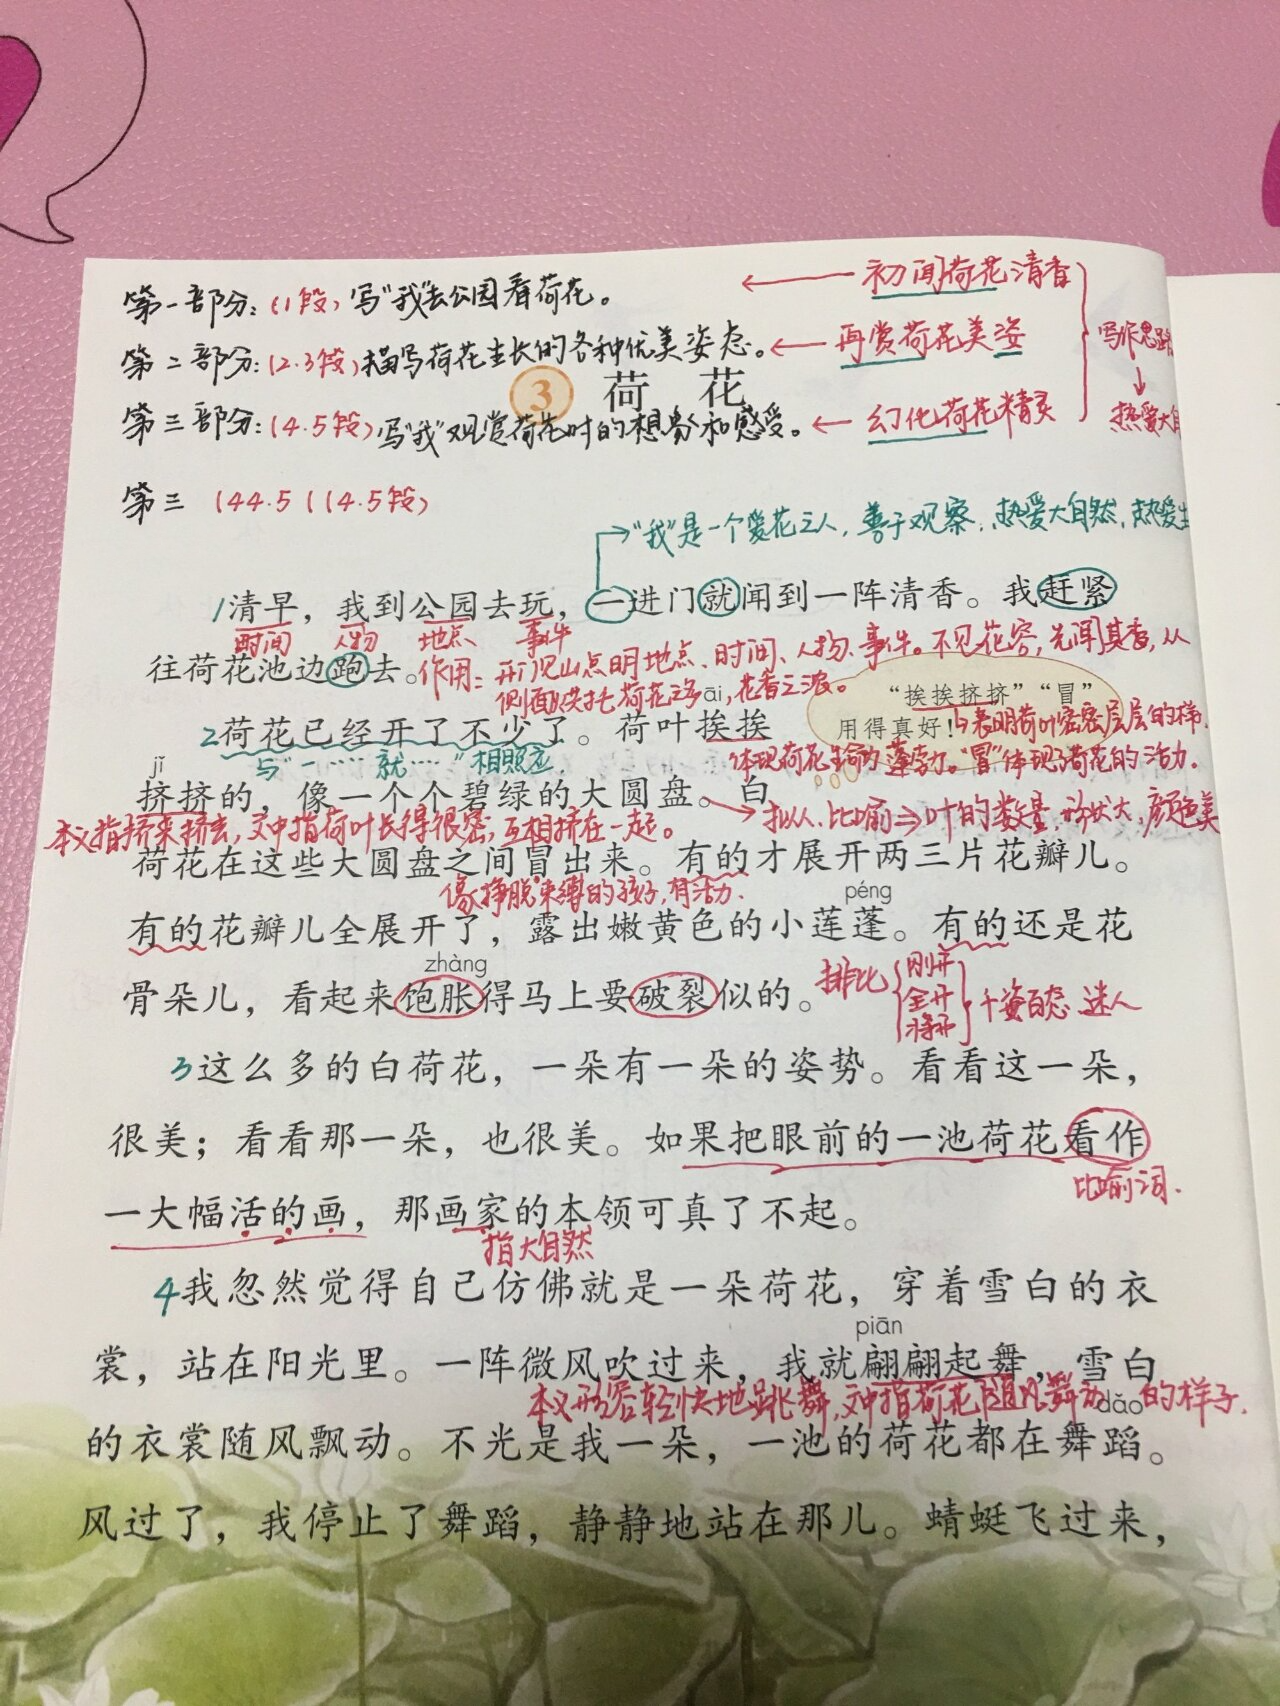 第一部分：（1段）写“我”去公园看荷花。 ← 初闻荷花清香
第二部分：（2.3段）描写荷花生长的各种优美姿态。 ← 再赏荷花美姿
写作思路
↓
热爱大自
3 荷 花
第三部分：（4.5段）写“我”观赏荷花时的想象和感受。 ← 幻化荷花精灵
第三 （4 4.5（（4.5段）
“我”是一个爱花之人，善于观察，热爱大自然，热爱生
1清早，我到公园去玩，一进门就闻到一阵清香。我赶紧
时间 人物 地点 事件
往荷花池边跑去。
作用：开门见山点明地点、时间、人物、事件。不见花容，先闻其香，从
侧面烘托荷花之多，花香之浓。
āi
“挨挨挤挤”“冒”
用得真好！
表明荷叶密密层层的样
2荷花已经开了不少了。荷叶挨挨
与“一……就……”相照应
体现荷花生命的蓬勃。“冒”体现了荷花的活力.
jǐ
挤挤的，像一个个碧绿的大圆盘。白
→拟人、比喻⇒叶的数量，形状大，颜色美
本义指挤来挤去，文中指荷叶长得很密，互相挤在一起。
荷花在这些大圆盘之间冒出来。有的才展开两三片花瓣儿。
像挣脱束缚的孩子，有活力.
péng
有的花瓣儿全展开了，露出嫩黄色的小莲蓬。有的还是花
zhàng
骨朵儿，看起来饱胀得马上要破裂似的。
排比 刚开 全开 将开 千姿百态 迷人
3这么多的白荷花，一朵有一朵的姿势。看看这一朵，
很美；看看那一朵，也很美。如果把眼前的一池荷花看作
比喻词.
一大幅活的画，那画家的本领可真了不起。
指大自然
4我忽然觉得自己仿佛就是一朵荷花，穿着雪白的衣
piān
裳，站在阳光里。一阵微风吹过来，我就翩翩起舞，雪白
本义形容轻快地跳舞，文中指荷花随风舞动的样子.
dǎo
的衣裳随风飘动。不光是我一朵，一池的荷花都在舞蹈。
风过了，我停止了舞蹈，静静地站在那儿。蜻蜓飞过来，